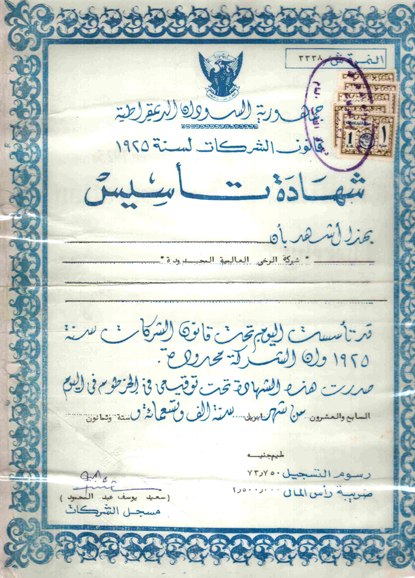 النمرة ٣٣٣٨
جمهورية السودان الديمقراطية
قانون الشركات لسنة ١٩٢٥
شهادة تأسيس
بهذا أشهد بأن
" شركة الرعى العالمية المحدودة "
قد تأسست اليوم تحت قانون الشركات سنة
١٩٢٥ وان الشركة محدودة.
صدرت هذه الشهادة تحت توقيعي في الخرطوم في اليوم
السابع والعشرون من شهر ابريل سنة الف وتسعمائة و ستة وثمانون
مليم جنيه
رسوم التسجيل ٧٣٫٧٥٠
ضريبة رأس المال ٢٫٥٠٠٫٠٠٠
( سعيد يوسف عبد المحمود )
مسجل الشركات